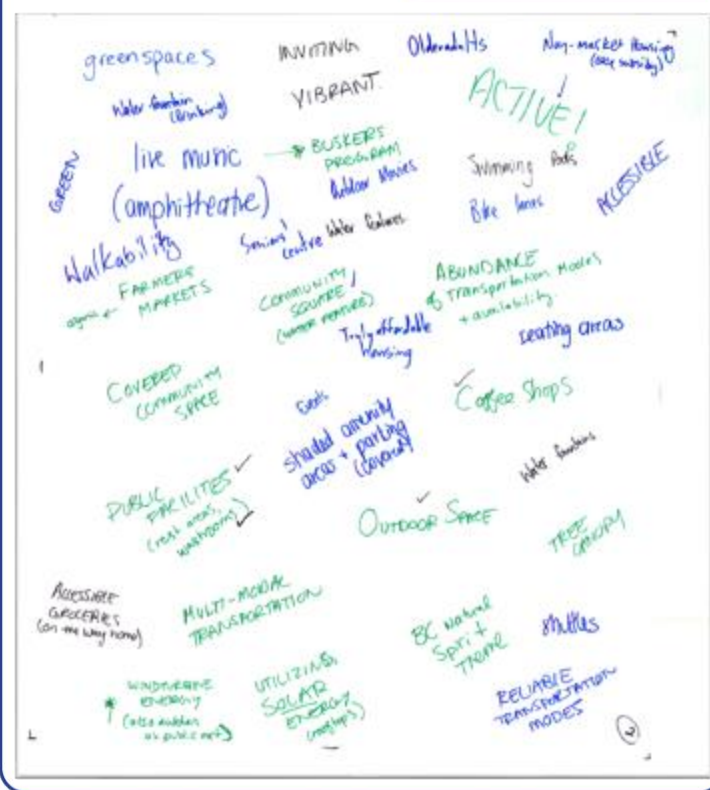 greenspaces
INVITING
Older adults
Non-market Housing
Water fountain
(drinking)
VIBRANT.
ACTIVE!
GREEN
live music
(amphitheatre)
BUSKERS
PROGRAM
Outdoor Movies
Swimming Pools
Bike lanes
ACCESSIBLE
Walkability
Seniors'
centre
Water features
FARMERS
MARKETS
COMMUNITY
SQUARE
(WATER FEATURE)
ABUNDANCE
of Transportation Modes
+ availability
Truly affordable
housing
seating areas
COVERED
COMMUNITY
SPACE
Coffee Shops
shaded amenity
areas + parking
(covered)
Water fountains
PUBLIC
FACILITIES
(rest areas,
washrooms)
OUTDOOR SPACE
TREE
CANOPY
ACCESSIBLE
GROCERIES
(on the way home)
MULTI-MODAL
TRANSPORTATION
BC Natural
Spirit
Theme
shuttles
WIND TURBINE
ENERGY
UTILIZING
SOLAR
ENERGY
(rooftops)
RELIABLE
TRANSPORTATION
MODES
2